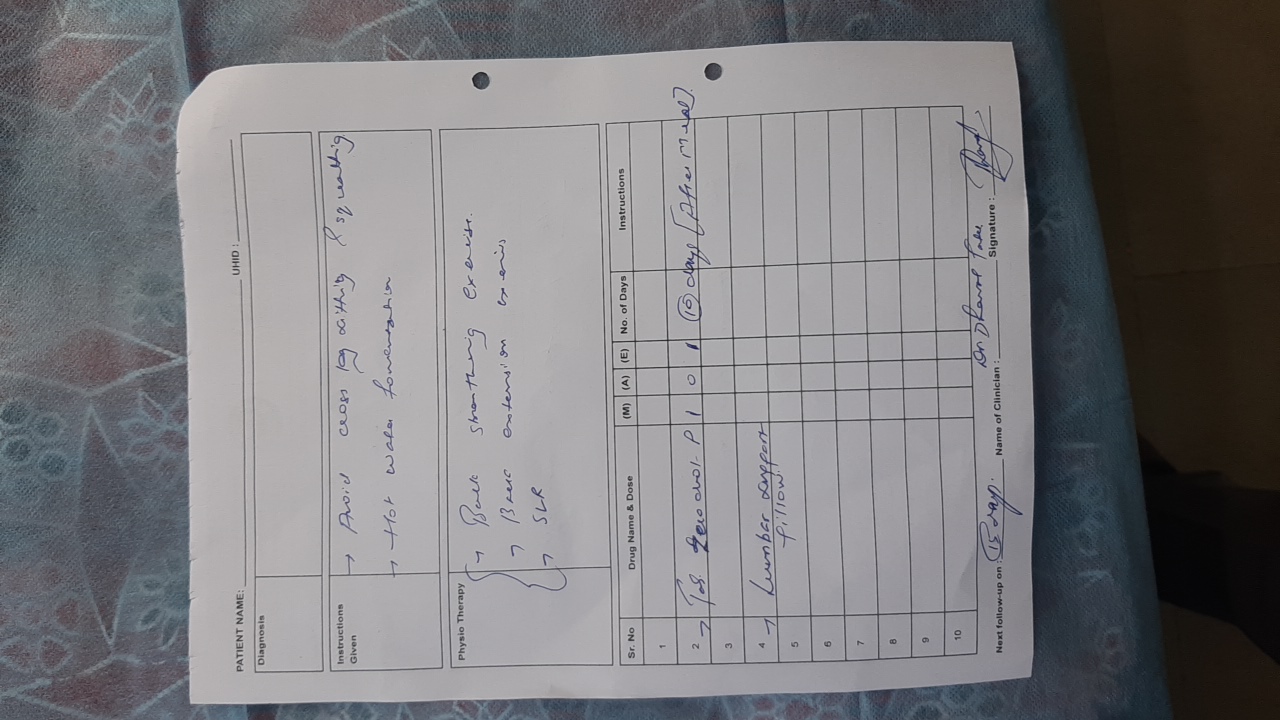 PATIENT NAME: UHID :
Diagnosis
Instructions Given
→ Avoid cross leg sitting & squatting
→ Hot water fomentation
Physio Therapy
→ Back exercise.
→ Back extension
→ SLR
Sr. No Drug Name & Dose (M) (A) (E) No. of Days Instructions
1
2 → Tab. Zerodol-P 1 0 1 10 days [After Meal].
3
4 → Lumbar support
pillow.
5
6
7
8
9
10
Next follow-up on : 15 days. Name of Clinician : Dr. Signature :